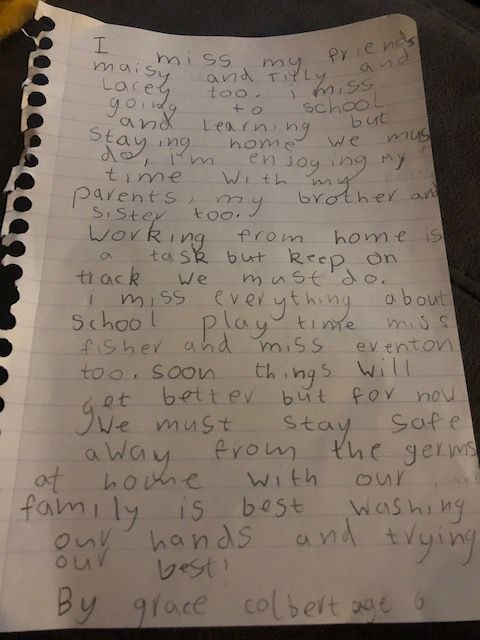 I miss my friends
maisy and Tilly and
Lacey too. i miss
going to school
and Learning but
Staying home we mus
do, i'm enjoying my
time with my
parents, my brother and
sister too.
Working from home is
a task but keep on
track we must do.
i miss everything about
school play time miss
fisher and miss eventon
too. soon things will
get better but for now
We must stay safe
away from the germs
at home with our
family is best washing
our hands and trying
our best!
By grace colbert age 6